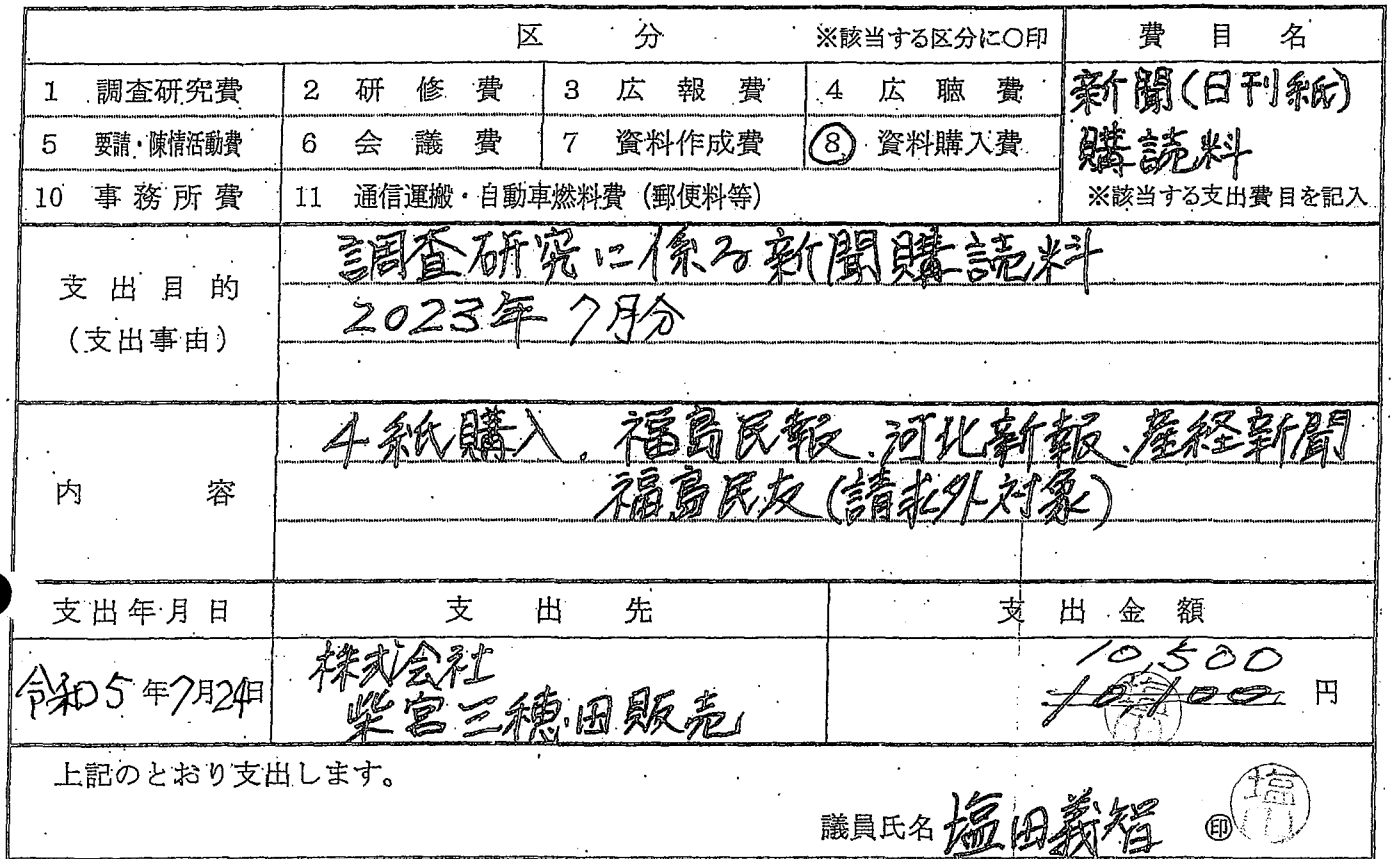 区 分 ※該当する区分に○印
費 目 名
1 調査研究費 2 研 修 費 3 広 報 費 4 広 聴 費
5 要請・陳情活動費 6 会 議 費 7 資料作成費 ⑧ 資料購入費
10 事 務 所 費 11 通信運搬・自動車燃料費（郵便料等）
新聞(日刊紙)
購読料
※該当する支出費目を記入
支 出 目 的
(支出事由)
調査研究に係る新聞購読料
2023年 7月分
内 容
4紙購入、福島民報、河北新報、産経新聞
福島民友(請求外対象)
支出年月日 支 出 先 支 出 金 額
令和05年7月24日
株式会社
柴宮三穂田販売
10,500
10,100 円
上記のとおり支出します。
議員氏名 塩田義智 ㊞
塩田